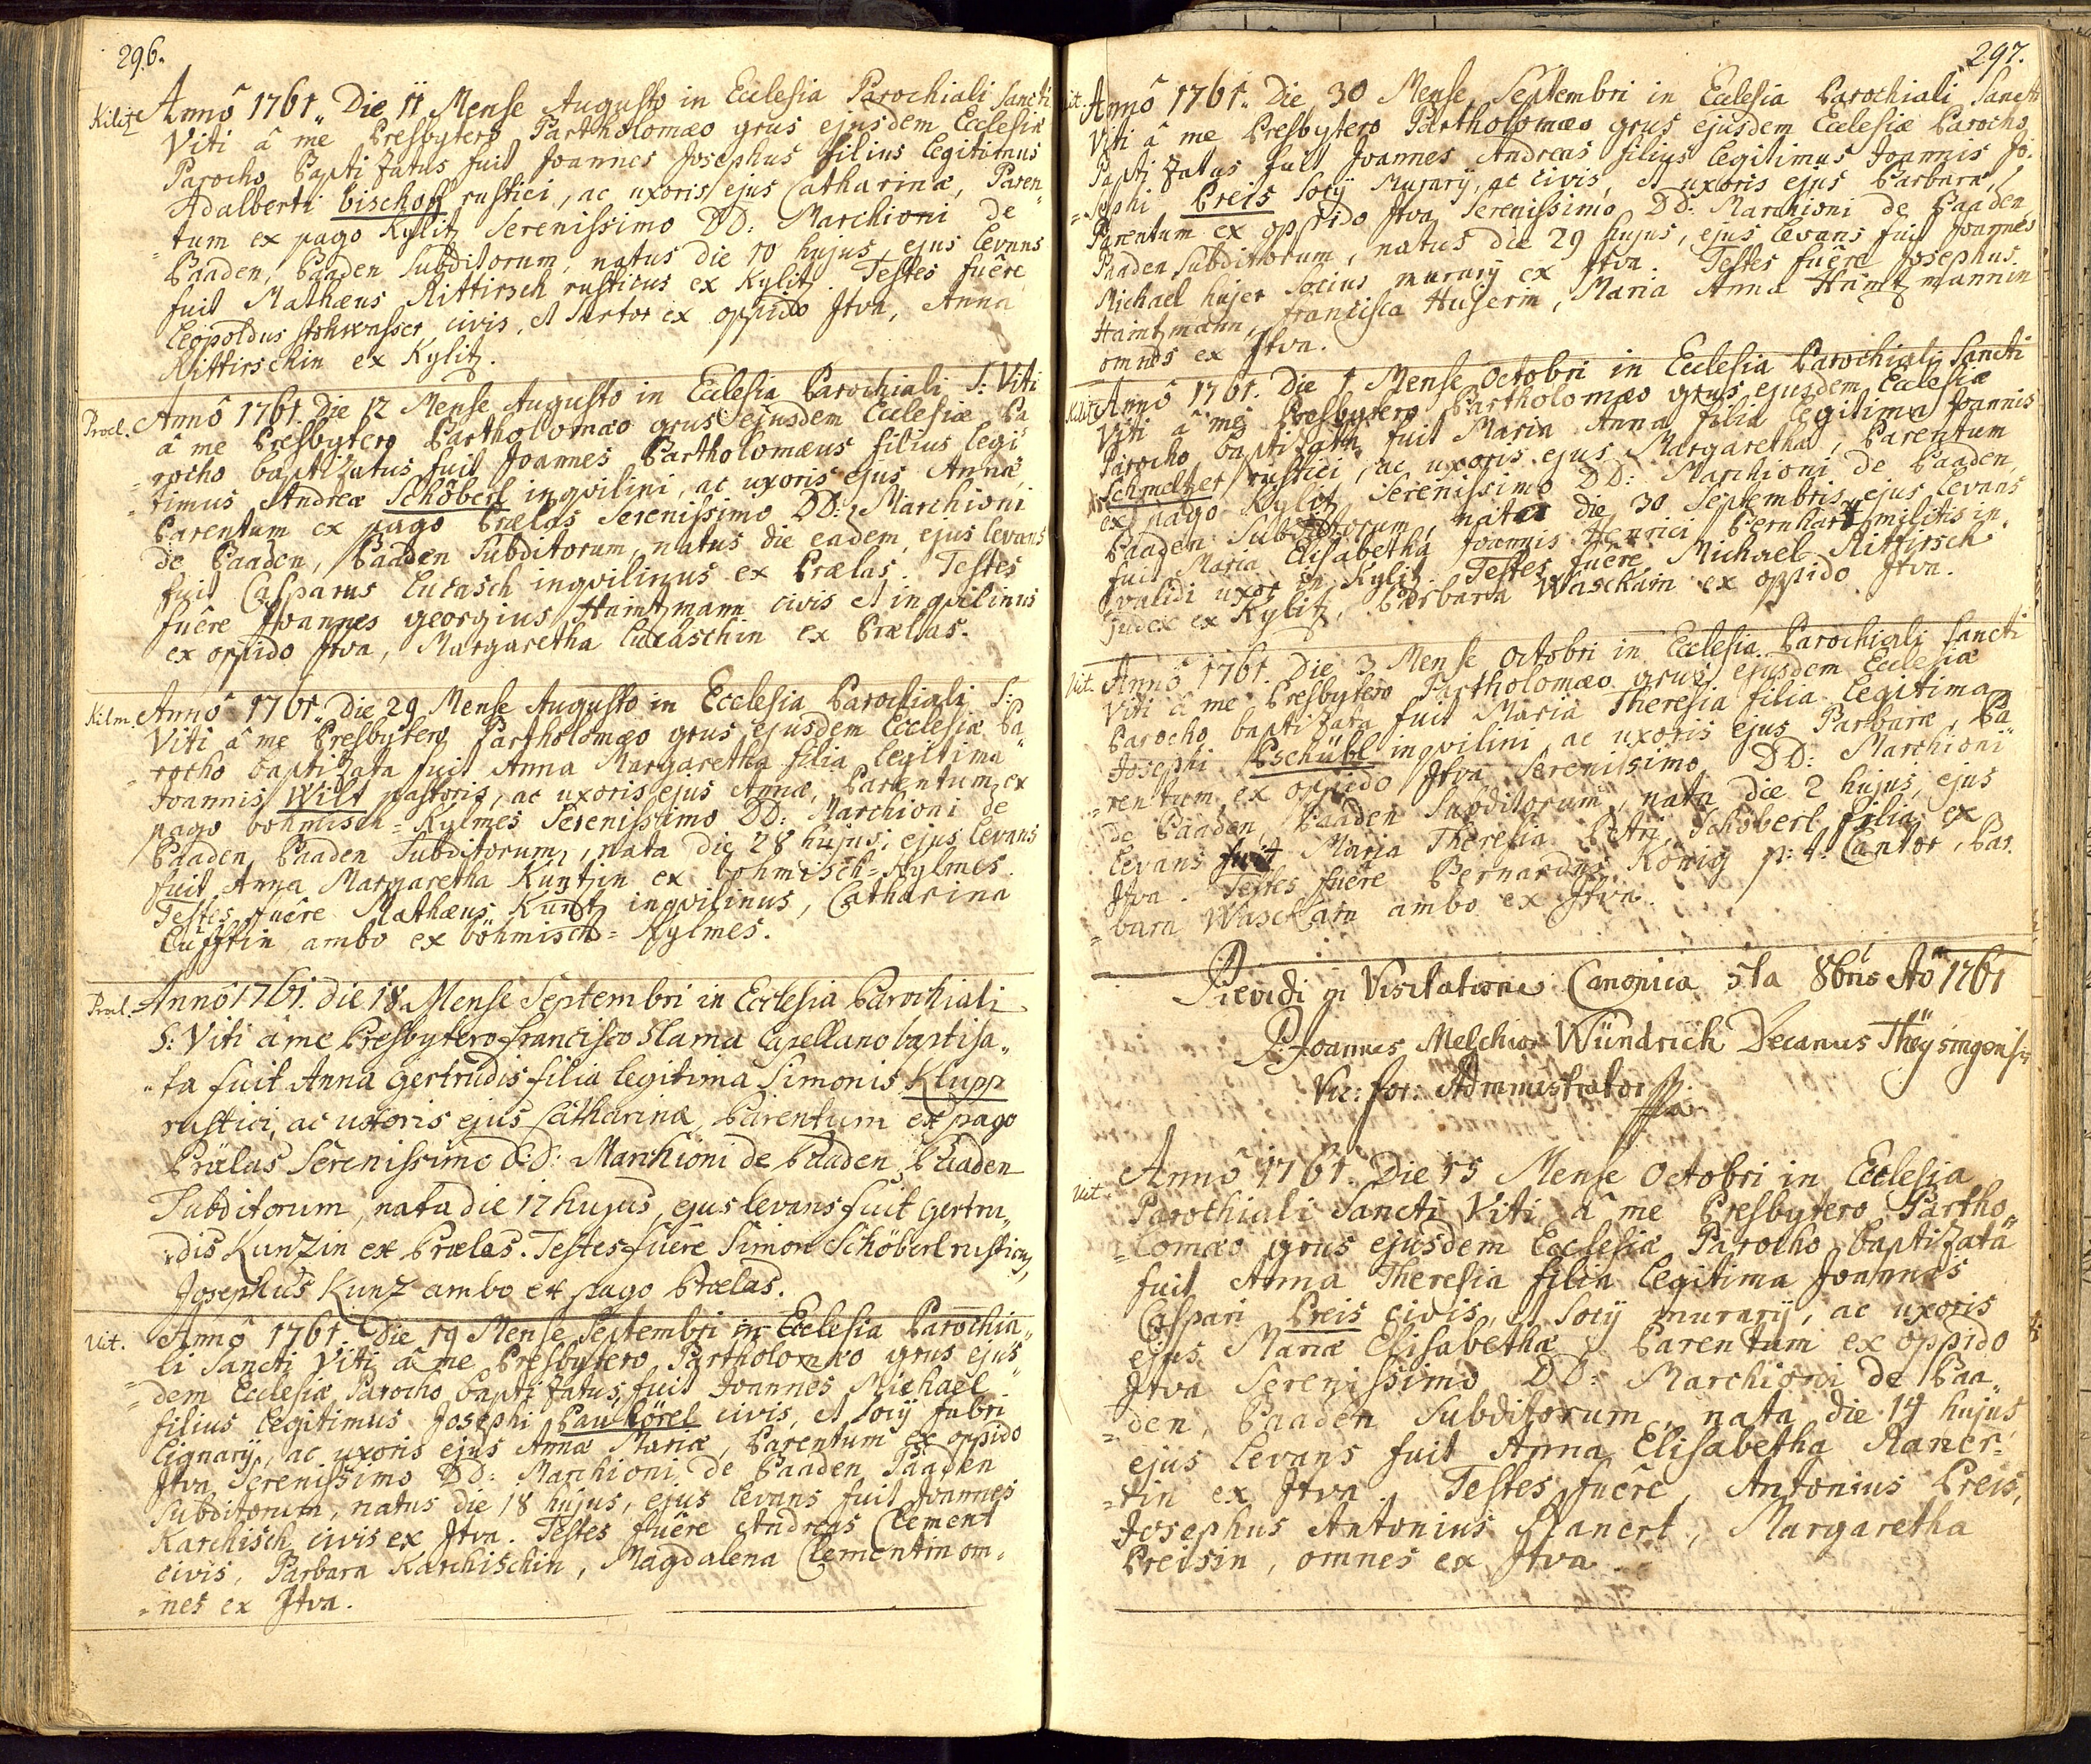 296.
Kilitz Annô 1761. Die 11 Mense Augusto in Ecclesia Parochiali Sancti
Viti â me Presbytero Partholomæo grus ejusdem Ecclesiæ
Parocho Baptizatus fuit Joannes Josephus filius legitimus
Adalberti bischoff rustici, ac uxoris ejus Catharinæ, Paren"
"tum ex pago Kylitz Serenissimo DD: Marchioni de
Baaden, Baaden Subditorum, natus die 10 hujus, ejus levans
fuit Mathæus Rittirsch rusticus ex Kylitz. Testes fuêre
Leopoldus stohwasser civis, et sartor ex oppido Jtva, Anna
Rittirschin ex Kylitz.
Prœl. Annô 1761. Die 12 Mense Augusto in Ecclesia Parochiali S: Viti
â me Presbytero Bartholomæo grus ejusdem Ecclesiæ Pa
=rocho baptizatus fuit Joannes Bartholomæus filius legi
=timus Andreæ Schöberl inqvilini, ac uxoris ejus Annæ
Parentum ex pago Prœlas Serenissimo DD: Marchioni
de Baaden, Baaden Subditorum, natus die eadem, ejus levans
fuit Casparus Lucasch inqvilinus ex Prœlas. Testes
fuêre Joannes georgius Haintzmann civis et inqvilinus
ex oppido Jtva, Margaretha Lucaschin ex Prœlas.
Kilm. Annô 1761. Die 29 Mense Augusto in Ecclesia Parochiali S:
Viti â me Presbytero Partholomæo grus ejusdem Ecclesiæ Pa"
=rocho baptizata fuit Anna Margaretha filia legitima
Joannis Wilt pastoris, ac uxoris ejus Annæ, Parentum ex
pago bohmisch=Kylmes Serenissimo DD: Marchioni de
Baaden, Baaden Subditorum, nata die 28 hujus, ejus levans
fuit Anna Margaretha Kuntzin ex bohmisch=Kylmes.
Testes fuêre Mathæus Kuntz inqvilinus, Catharina
Lufftin ambo ex böhmisch=Kylmes.
Prœl. Annô 1761. die 18. Mense Septembri in Ecclesia Parochiali
S: Viti â me Presbytero Francisco Slama Capellano baptisa„
„ta fuit Anna Gertrudis filia legitima Simonis Klupp
rustici, ac uxoris ejus Catharinæ, Parentum ex pago
Prœlas Serenissimo D:D: Marchioni de Baaden, Baaden
Subditorum, nata die 17 hujus, ejus levans fuit Gertru„
„dis Kunzin ex Prœlas. Testes fuêre Simon Schöberl rusticus,
Josephus Kunz ambo ex pago Prœlas.
Uit. Annô 1761. Die 19 Mense Septembri in Ecclesia Parochia„
=li Sancti Viti â me Presbytero Partholomæo grus ejus"
=dem Ecclesiæ Parocho baptizatus fuit Joannes Michael
filius legitimus Josephi Pauhörel civis, et socÿ fabri
lignarÿ, ac uxoris ejus Annæ Mariæ, Parentum ex oppido
Jtva Serenissimo DD: Marchioni de Baaden Baaden
Subditorum, natus die 18 hujus, ejus levans fuit Joannes
Karchisch civis ex Jtva. Testes fuêre Andreas Clement
civis, Parbara Karchischin, Magdalena Clementin om=
=nes ex Jtva.
297.
Uit. Annô 1761. Die 30 Mense Septembri in Ecclesia Parochiali Sancti
Viti â me Presbytero Partholomæo grus ejusdem Ecclesiæ Parocho
Paptizatus fuit Joannes Andreas filius legitimus Joannis Jo:
=sephi Preis Socÿ Murarÿ, ac civis, et uxoris ejus Barbaræ,
Parentum ex oppido Jtva Serenissimo DD: Marchioni de Baaden
Baaden Subditorum, natus die 29 hujus, ejus levans fuit Joannes
Michael hujer Socius murarÿ ex Jtva. Testes fuêre Josephus
Haintzmann, francisca Hujerin, Maria Anna Häintzmannin
omnes ex Jtva.
Kilitz Annô 1761. Die 1 Mense Octobri in Ecclesia Parochiali Sancti
Viti â me Presbytero Partholomæo grus ejusdem Ecclesiæ
Parocho baptizata fuit Maria Anna filia legitima Joannis
Schmeltzer rustici, ac uxoris ejus Margarethæ, Parentum
ex pago Kylitz Serenissimo DD: Marchioni de Baaden,
Baaden Subditorum, nata die 30 Septembris, ejus levans
fuit Maria Elisabetha Joannis Henrici Bernhart militis in
validi uxor in Kylitz. Testes fuêre Michael Rittirsch
judex ex Kylitz, Barbara Waschain ex oppido Jtva.
Uit. Annô 1761. Die 3 Mense Octobri in Ecclesia Parochiali Sancti
Viti â me Presbytero Partholomæo grus ejusdem Ecclesiæ
Parocho baptizata fuit Maria Theresia filia legitima
Josephi Pschübl inqvilini ac uxoris ejus Parbaræ, Pa
=rentum ex oppido Jtva Serenissimo DD: Marchioni
de Baaden, Baaden Subditorum, nata die 2 hujus, ejus
levans fuit Maria Theresia Petri Schöberl filia ex
Jtva. Testes fuêre Bernardus König p: t: Cantor, Bar
=bara Waschain ambo ex Jtva.
Prævidi in Visitatione Canonica 5ta 8bris Aô 1761
P: Joannes Melchior Wündrich Decanus Theÿsingensis
Vic: for: Administrator
Uit. Annô 1761. Die 15 Mense Octobri in Ecclesia
Parochiali Sancti Viti â me Presbytero Partho„
=lomæo grus ejusdem Ecclesiæ Parocho baptizata
fuit Anna Theresia filia legitima Joannes
Caspari Preis civis, et socÿ murarÿ, ac uxoris
ejus Mariæ Elisabethæ Parentum ex oppido
Jtva Serenissimo DD: Marchioni de Baa„
=den, Baaden Subditorum, nata die 14 hujus,
ejus levans fuit Anna Elisabetha Raner=
=tin ex Jtva. Testes fuêre, Antonius Preis,
Josephus Antonius Ranert, Margaretha
Preisin, omnes ex Jtva.